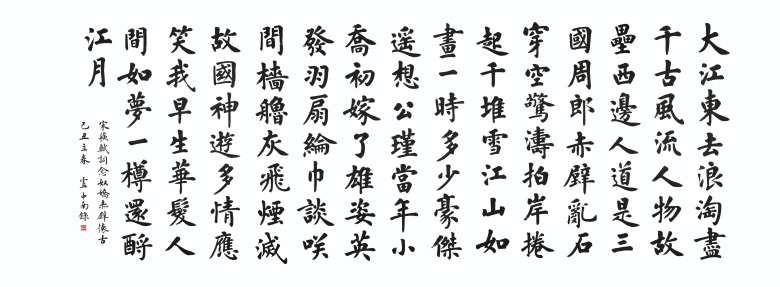 大江東去浪淘盡
千古風流人物故
壘西邊人道是三
國周郎赤壁亂石
穿空驚濤拍岸捲
起千堆雪江山如
畫一時多少豪傑
遥想公瑾當年小
喬初嫁了雄姿英
發羽扇綸巾談咲
間檣艣灰飛煙滅
故國神遊多情應
笑我早生華髮人
間如夢一樽還酹
江月
宋蘇軾詞念奴嬌赤壁懷古
己丑立春 雲中南錄